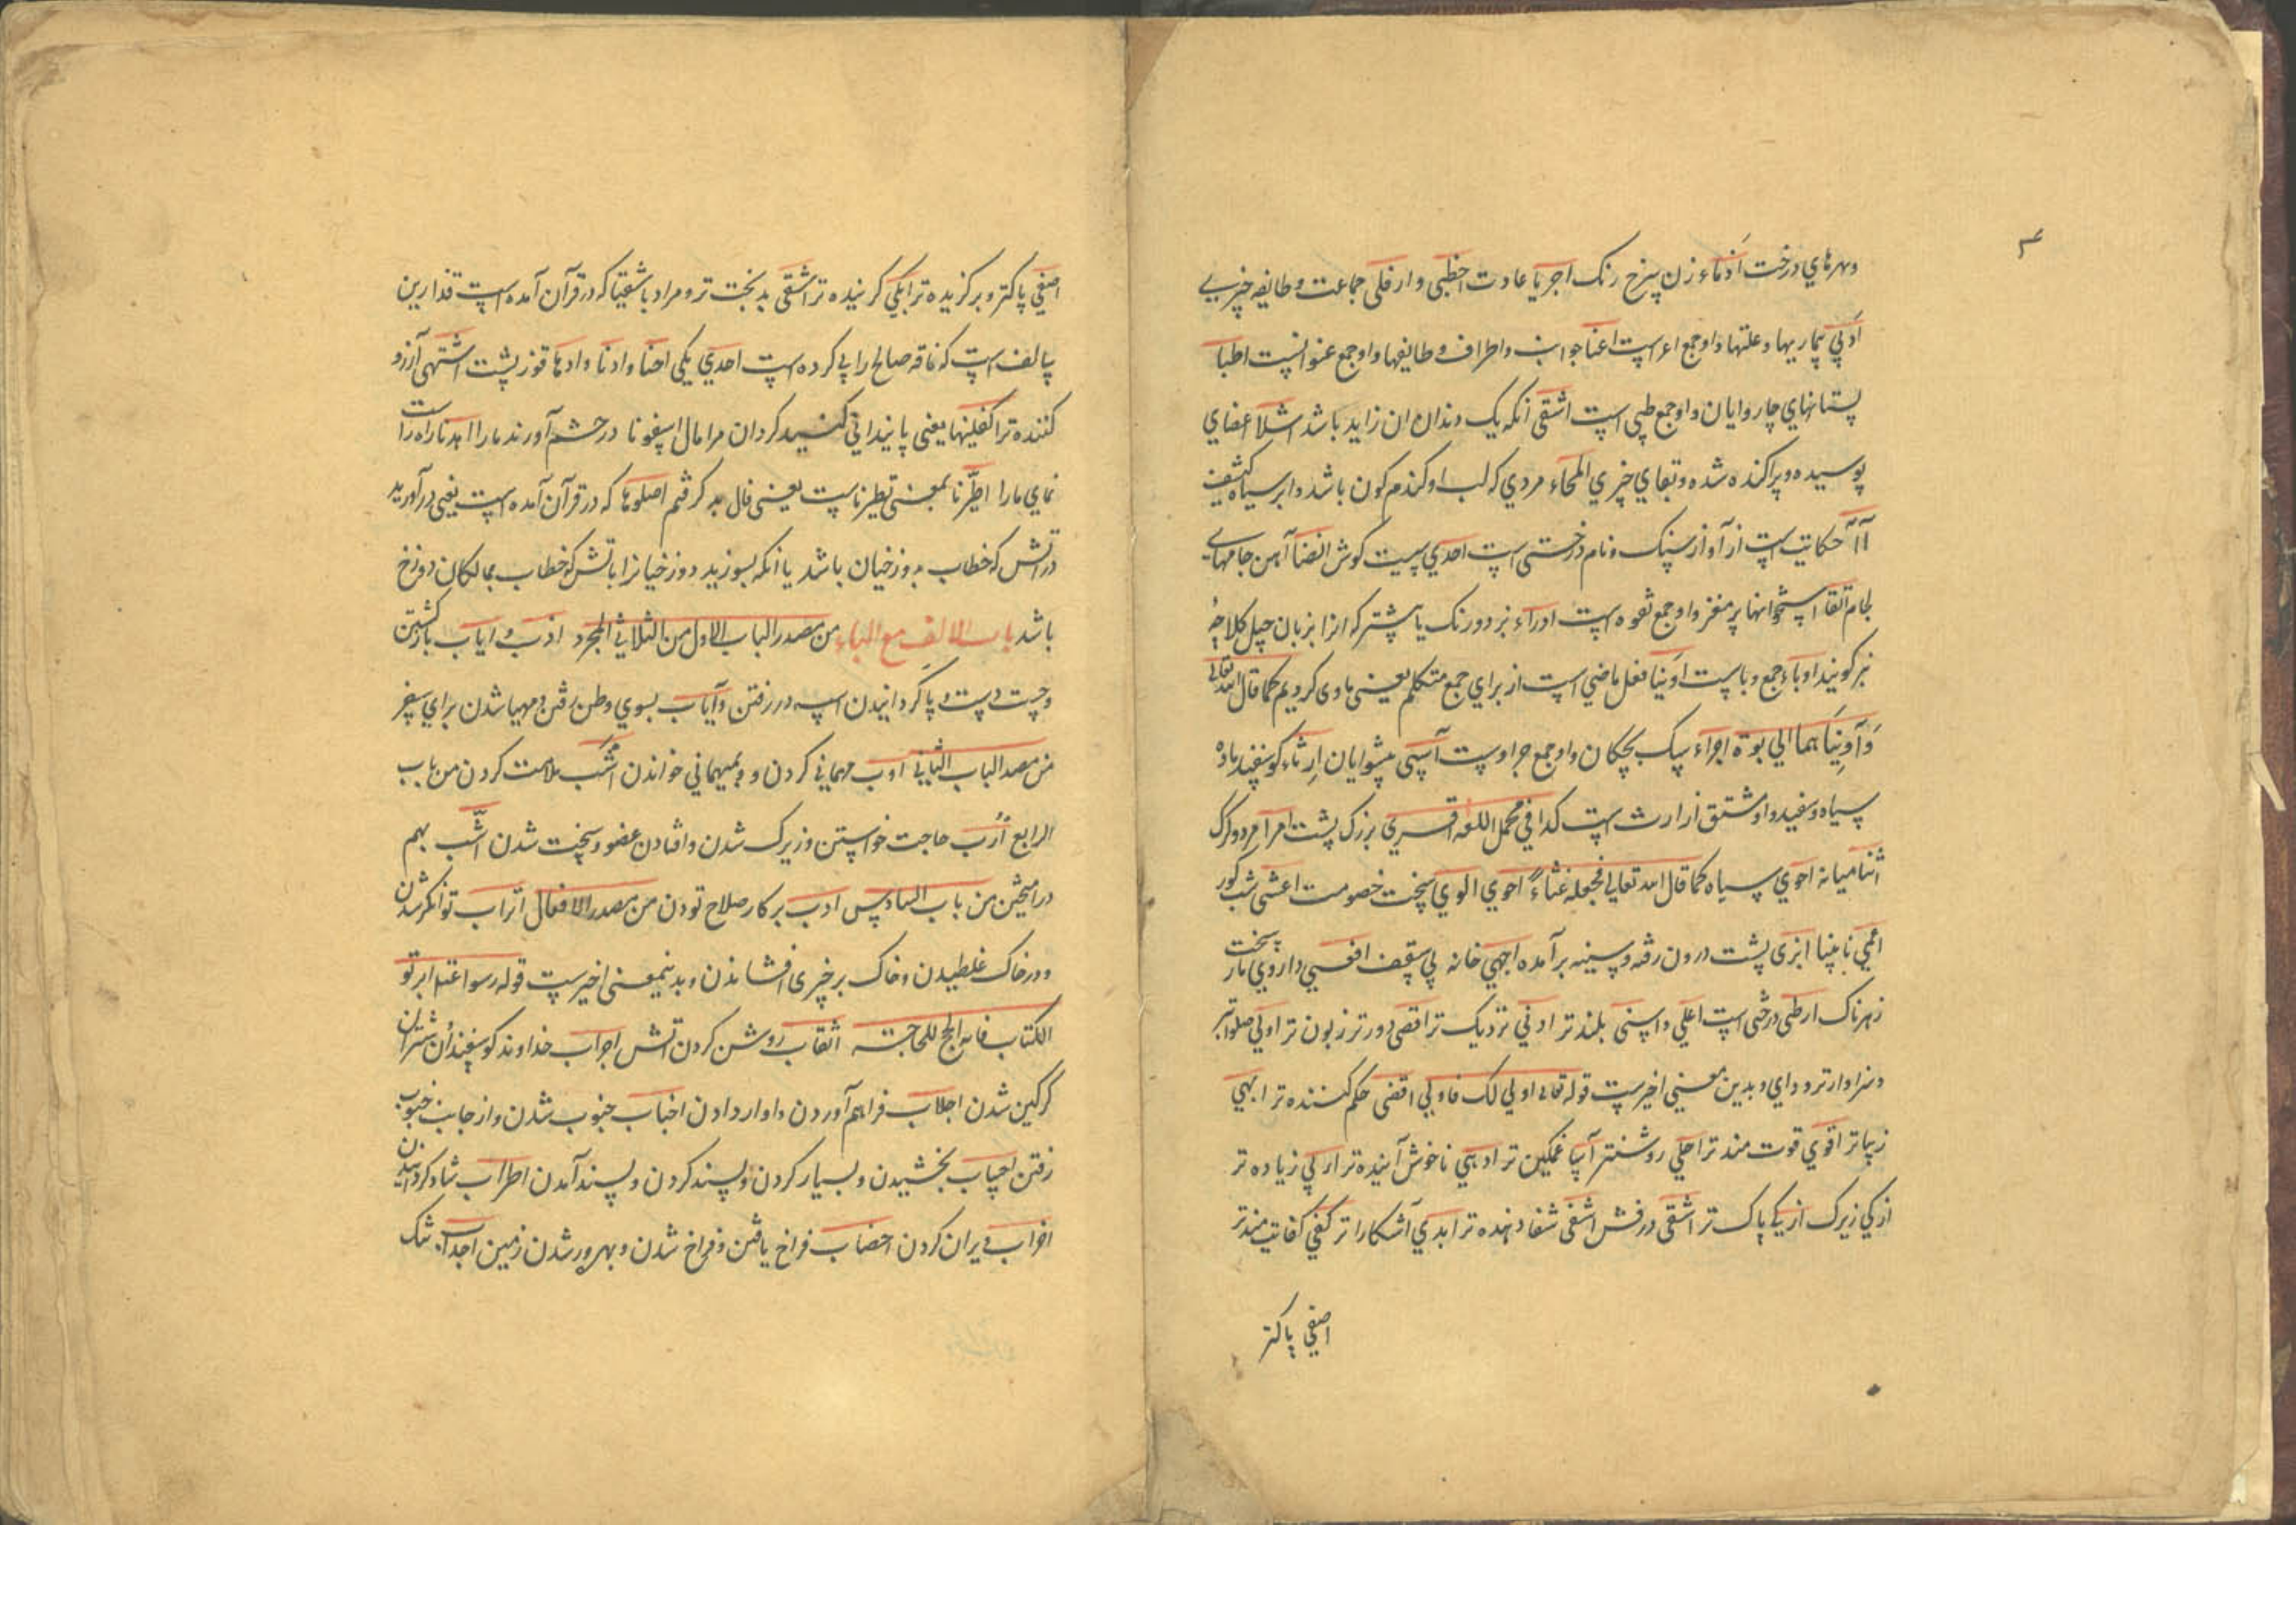 ۴
و بهرهاي درخت اَدْماء زن سرخ رنک اجريا عادت احظبي و ارفلي جماعت و طايفه خيري بي
اَدْوي بيماريها و علتها و اوجمع اعراست اعنا جوانب و اطراف و طايفها و اوجمع عنو است اطبا
پستانهاي چاروايان و اوجمع طبي است اشقي آنکه يک دندان ان زايد باشد اشلا اعضاي
پوسيده و پراکنده شده و بقاي چيزي المحاء مردي که لب او کندم کون باشد و ابر سياه کثيف
آآ حکايت است از آواز سنک و نام درختي است احدي بيست کوش انضا آهن جامهاي
لجام انقا استخوانها پرمغز و اوجمع نقوه است ادراء نزد و رنک يا شتر که انرا بزبان جيل کلاجه
نيز کويند اوباء جمع وباست اوينا فعل ماضي است از براي جمع متکلم يعني ماوي کرديم کما قال الله تعالي
وَآوَينَاهما الي ربوة اجراء سک بچکان و اوجمع جراوست آسي پيشوايان ارثاء کوسفند ماده
سياه و سفيد و او مشتق از ارث است کذا في مجمل اللغه اقسري بزرک پشت امرا مرد و کرک
اثنا ميانه احوي سياه کما قال الله تعالي فجعله غثاءً احوي الوي سخت خصومت اعشي شب کور
اعمي نابينا ابزي پشت درون رفته و سينه برآمده اجهي خانه بي سقف افعي داروي مار سخت
زهرناک ارطي درختي است اعلي و اسني بلندتر ادني نزديک تر اقصي دورتر زبون تر اولي صلواتر
و سزاوارتر و واي و بدين معني اخيرست قوله تعالي اولي لک فاولي اقضي حکم کننده تر ابهي
زيباتر اقوي قوت مندتر اجلي روشنتر آسا غمکين تر ادهي ناخوش آينده تر اربي زياده تر
ازکي زيرک ازکي پاک تر اشقي درفش اشفي شفا دهنده تر ابدي آشکارا تر کفي کفايت مندتر
اصفي پاکتر
اصفي پاکتر و برکزيده تر ابکي کرينده تر اشقي بدبخت تر و مراد باشقيا که در قرآن آمده است قدارين
سالف است که ناقه صالح را پي کرده است احدي يکي احنا و ادنا و ادها قوز پشت اشتهي آرزو
کننده تر اکفلنيها يعني پايندانی کنيد کردان مرا مال اسفونا در خشم آورند مارا اهدنا راه راست
نماي مارا اطّيرنا بمعني تطيرناست يعني فال بد کرفتيم اصلوها که در قرآن آمده است يعني درآوريد
در آتش که خطاب بدوزخيان باشد يا آنکه بسوزيد دوزخيانرا بآتش که خطاب بمالکان دوزخ
باشد باب الالف مع الباء من مصدر الباب الاول من الثلاثي المجرد اَوب و اياب بازکشتن
و چست دست و پا کردانيدن اسب در رفتن و آياب بسوي وطن رفتن و مهيا شدن براي سفر
من مصدر الباب الثاني ادب مهماني کردن و بميهماني خواندن اشب ملامت کردن من باب
الرابع اَرَب حاجت خواستن و زيرک شدن و افتادن عضو و سخت شدن اشّب بهم
درآميختن من باب السادس ادب برکار صلاح بودن من مصدر الافعال اتراب توانکر شدن
و در خاک غلطيدن و خاک بر چيزي افشاندن و بدينمعني اخيرست قوله رسول عم اتربو
الکتاب فانه انجح للحاجة اثقاب روشن کردن آتش اجراب خداوند کوسفندان و شتران
کرکين شدن اجلاب فراهم آوردن و اواز دادن اجناب جنوب شدن و از جانب جنوب
رفتن احساب بخشيدن و بسيار کردن و پسند کردن و پسند آمدن اطراب شاد کردانيدن
اخراب ويران کردن اخصاب فراخ يافتن و فراخ شدن و بهرور شدن زمين اجداب تنک